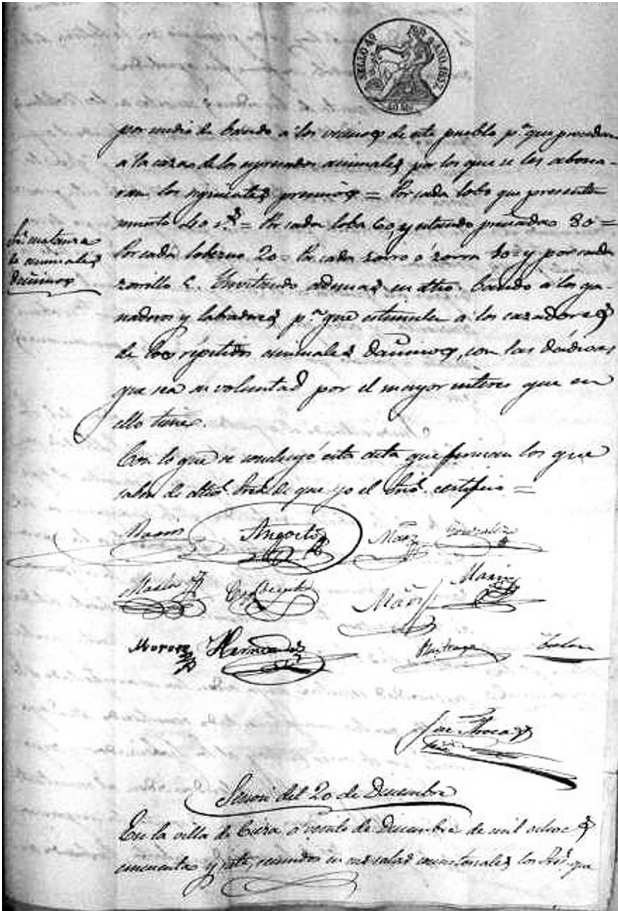 SELLO 4º POR S. AÑO 1857.
40 Ms
por medio de bando a los vecinos de este pueblo pª que procedan
a la caza de los espresados animales por los que se les abona-
ran los siguientes premios = Por cada lobo que presente
muerto 40 rs = Por cada loba 60 y estando preñada 80 =
Por cada lobezno 20 = Por cada zorro ó zorra 10 = y por cada
zorrillo 5. Invitando ademas en dho. bando a los ga-
naderos y labradores pª que estimulen a los cazadores
de los repetidos animales dañinos, con las dadivas
que sea su voluntad por el mayor interes que en
ello tienen.
Sre matanza
de animales
dañinos
Con lo que se concluyó esta acta que firman los que
saben de dhos Sres de que yo el Srio. certifico =
Angosto Gonzalez
Marin
Moreno Hernandez Buitrago
Jose
Sesion del 20 de Diciembre
En la villa de Cieza a veinte de Diciembre de mil ochocs
cincuenta y siete, reunidos en sus salas consistoriales los Sres. que